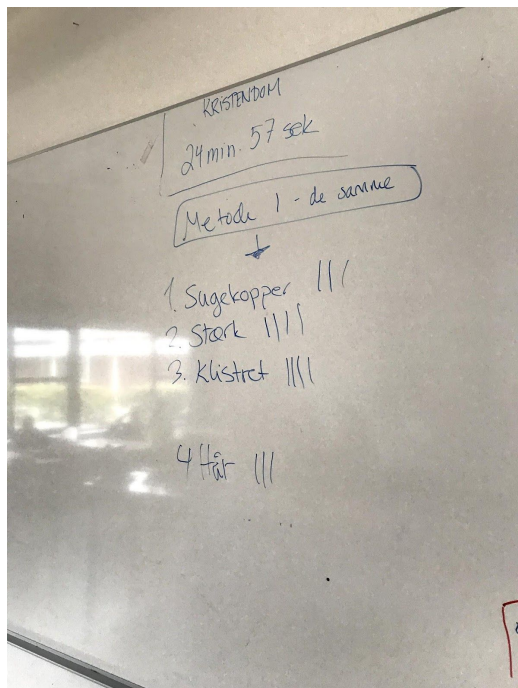 KRISTENDOM
24 min. 57 sek
Metode 1 - de samme
1. Sugekopper |||
2. Stærk ||||
3. Klistret ||||
4 Hår |||